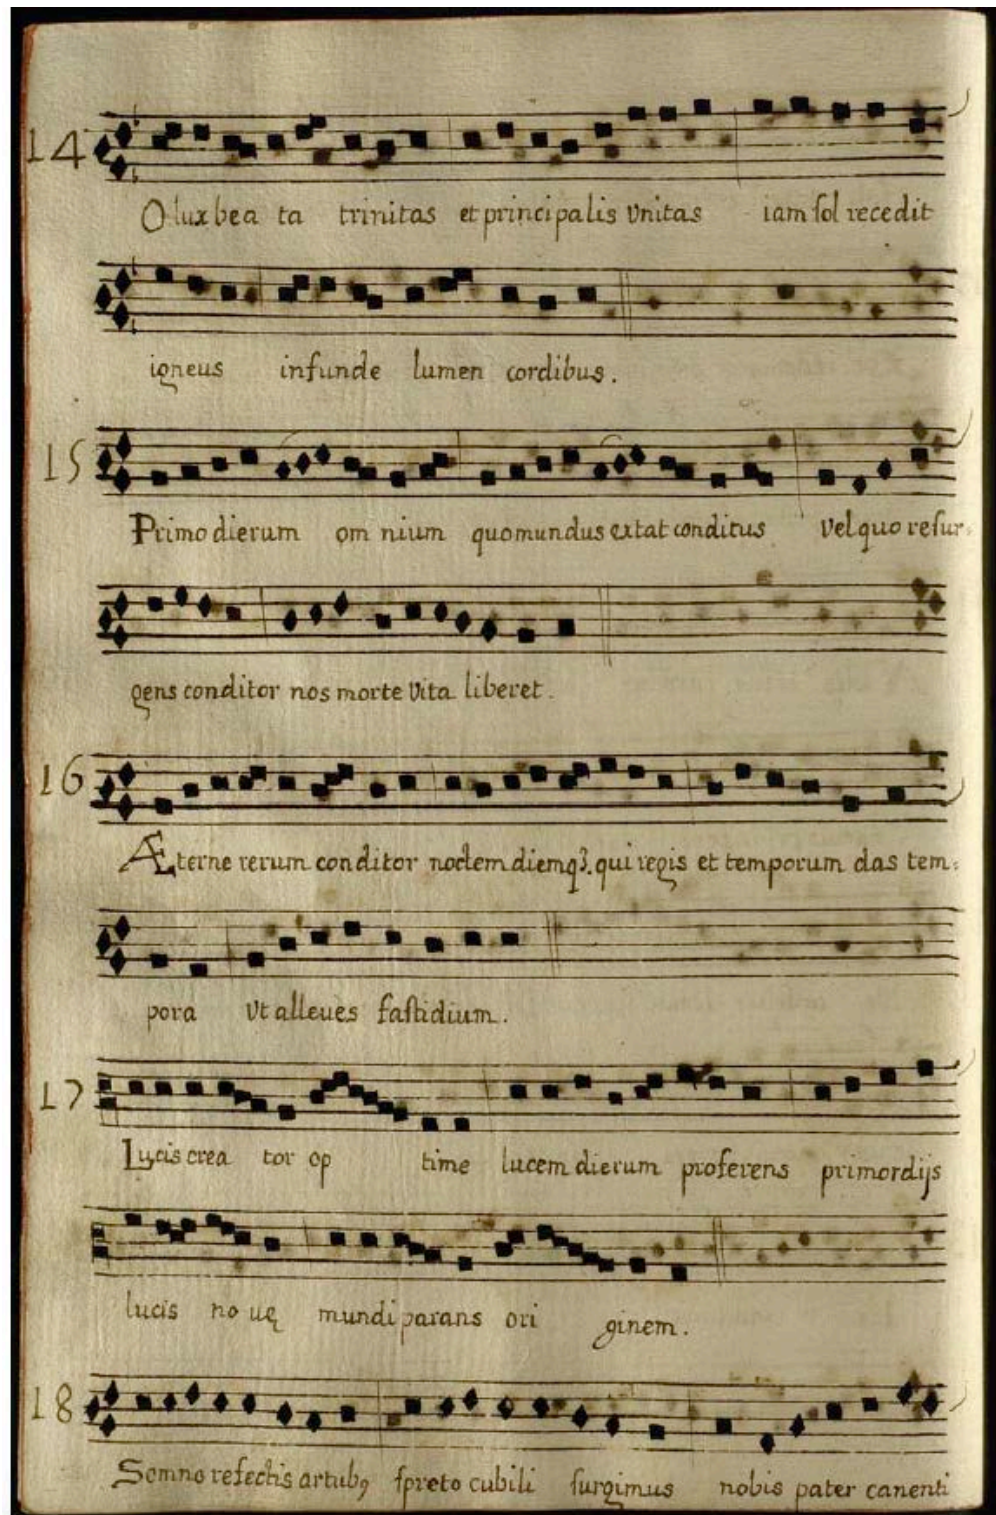 14 O lux bea ta trinitas et principalis vnitas iam sol recedit
igneus infunde lumen cordibus.
15 Primo dierum om nium quo mundus extat conditus vel quo resur=
gens conditor nos morte vita liberet.
16 Æterne rerum conditor noctem diemqꝫ. qui regis et temporum das tem=
pora Vt alleues fastidium.
17 Lucis crea tor op time lucem dierum proferens primordijs
lucis no uę mundi parans ori ginem.
18 Somno refectis artubꝰ spreto cubili surgimus nobis pater canenti